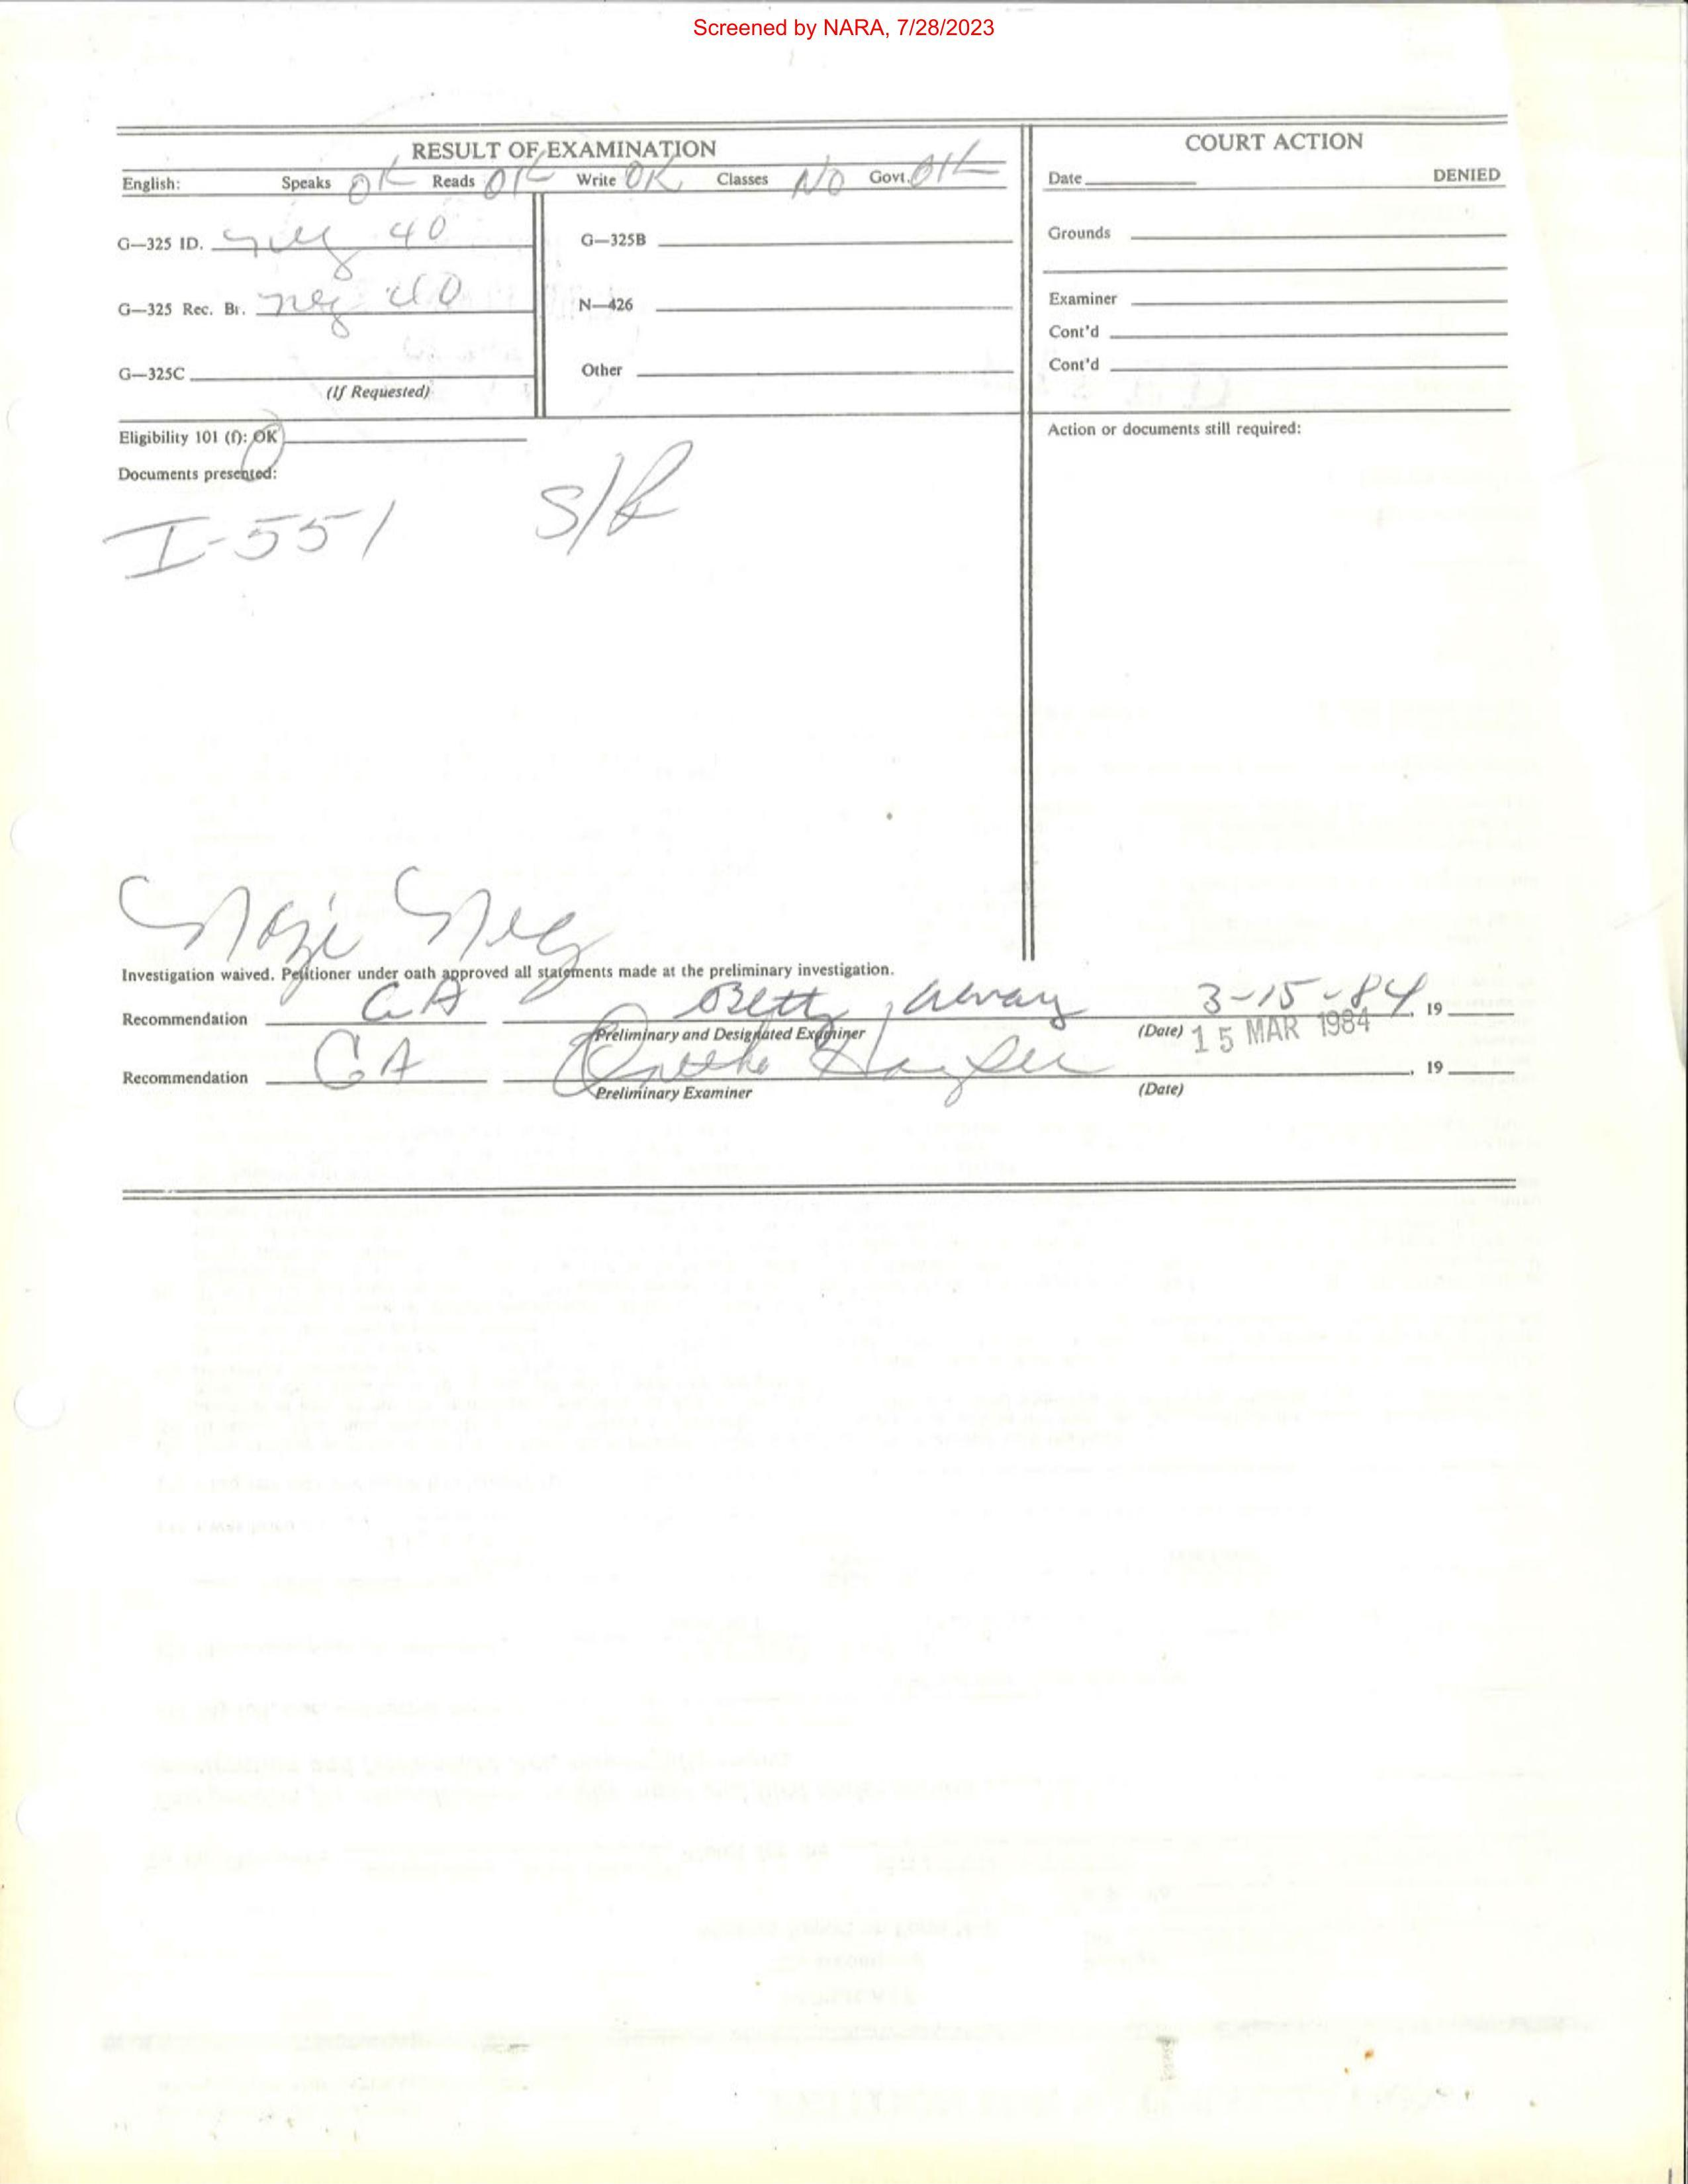 Screened by NARA, 7/28/2023
RESULT OF EXAMINATION
English: Speaks OK Reads OK Write OK Classes NO Govt. OK
G—325 ID. neg 40
G—325 Rec. Br. neg 40
G—325C
(If Requested)
G—325B
N—426
Other
COURT ACTION
Date DENIED
Grounds
Examiner
Cont'd
Cont'd
Eligibility 101 (f): OK
Documents presented:
I-551 S/R
Action or documents still required:
Nazi Neg
Investigation waived. Petitioner under oath approved all statements made at the preliminary investigation.
Recommendation GA Betty 3-15-84, 19
Preliminary and Designated Examiner (Date) 15 MAR 1984
Recommendation GA , 19
Preliminary Examiner (Date)